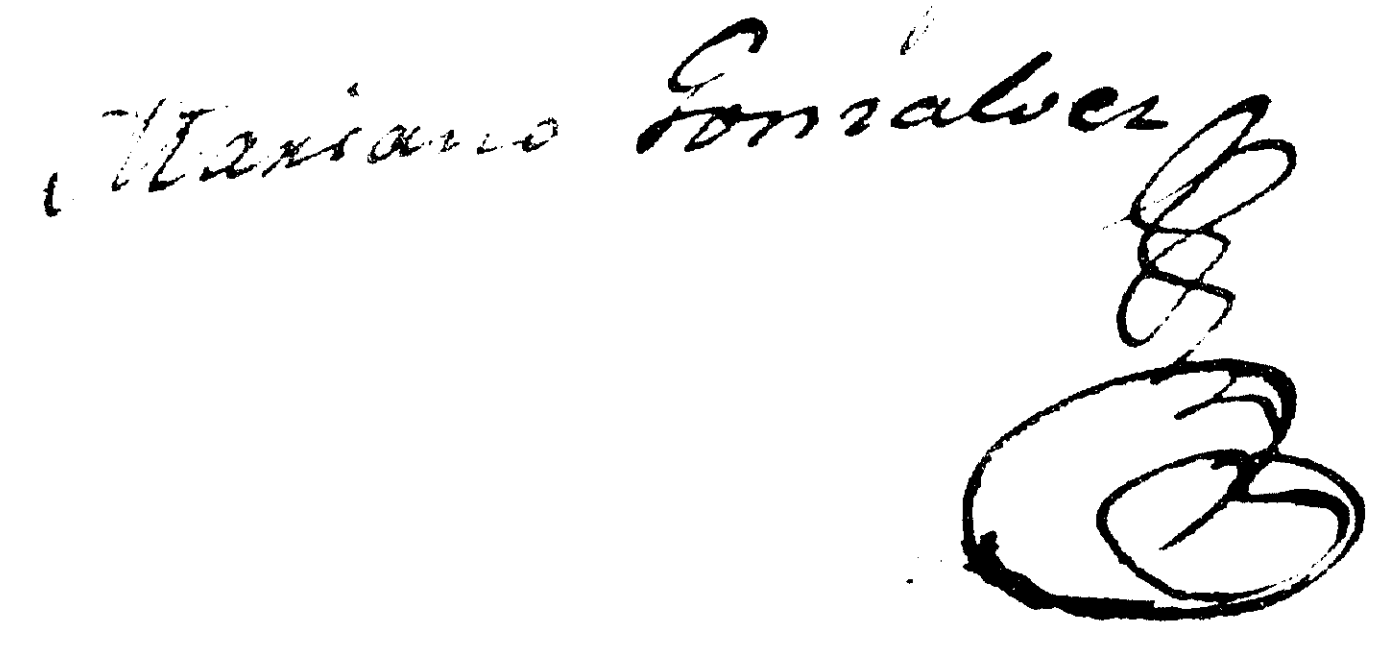 Mariano Gonsalvez